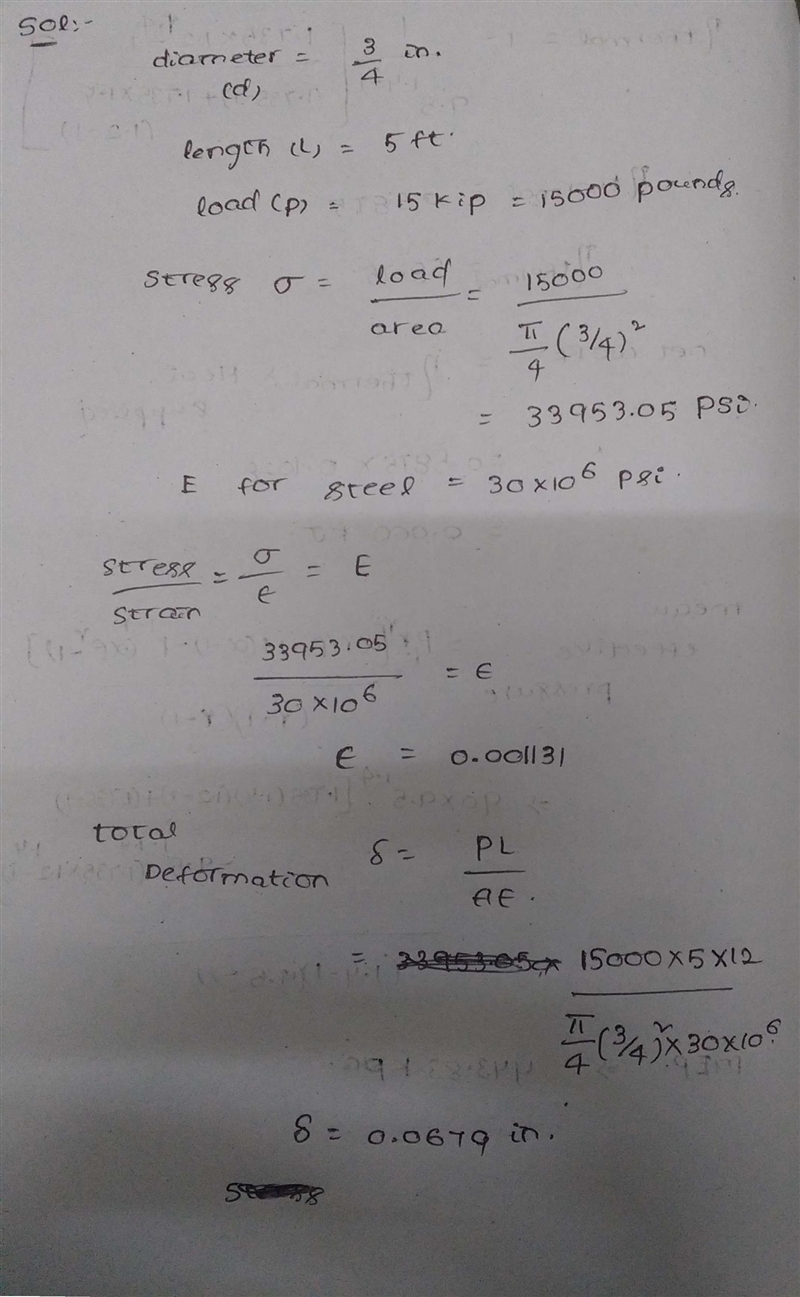 Sol:-
diameter = 3/4 in.
(d)
length (L) = 5 ft.
load (P) = 15 kip = 15000 pounds.
stress σ = load/area = 15000 / π/4 (3/4)²
= 33953.05 PSi.
E for steel = 30×10⁶ psi.
stress/strain = σ/ϵ = E
33953.05 / 30×10⁶ = ϵ
ϵ = 0.001131
total
Deformation δ = PL/AE.
= 15000×5×12 / π/4 (3/4)²×30×10⁶
δ = 0.0679 in.